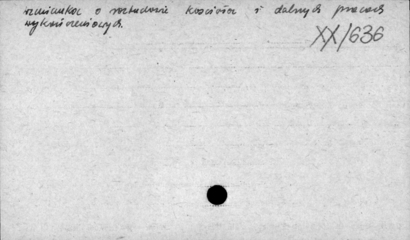 wzmianka o rozbudowie kościoła i dalszych pracach
wykończeniowych.
XX/636